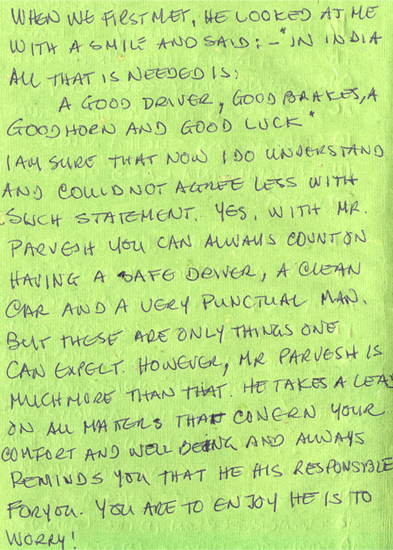 WHEN WE FIRST MET, HE LOOKED AT ME
WITH A SMILE AND SAID: - "IN INDIA
ALL THAT IS NEEDED IS:
A GOOD DRIVER, GOOD BRAKES, A
GOOD HORN AND GOOD LUCK"
I AM SURE THAT NOW I DO UNDERSTAND
AND COULD NOT AGREE LESS WITH
SUCH STATEMENT. YES, WITH MR.
PARVESH YOU CAN ALWAYS COUNT ON
HAVING A SAFE DRIVER, A CLEAN
CAR AND A VERY PUNCTUAL MAN.
BUT THESE ARE ONLY THINGS ONE
CAN EXPECT. HOWEVER, MR PARVESH IS
MUCH MORE THAN THAT. HE TAKES A LEA
ON ALL MATTERS THAT CONCERN YOUR
COMFORT AND WELL BEING AND ALWAYS
REMINDS YOU THAT HE HIS RESPONSIBLE
FOR YOU. YOU ARE TO ENJOY HE IS TO
WORRY!